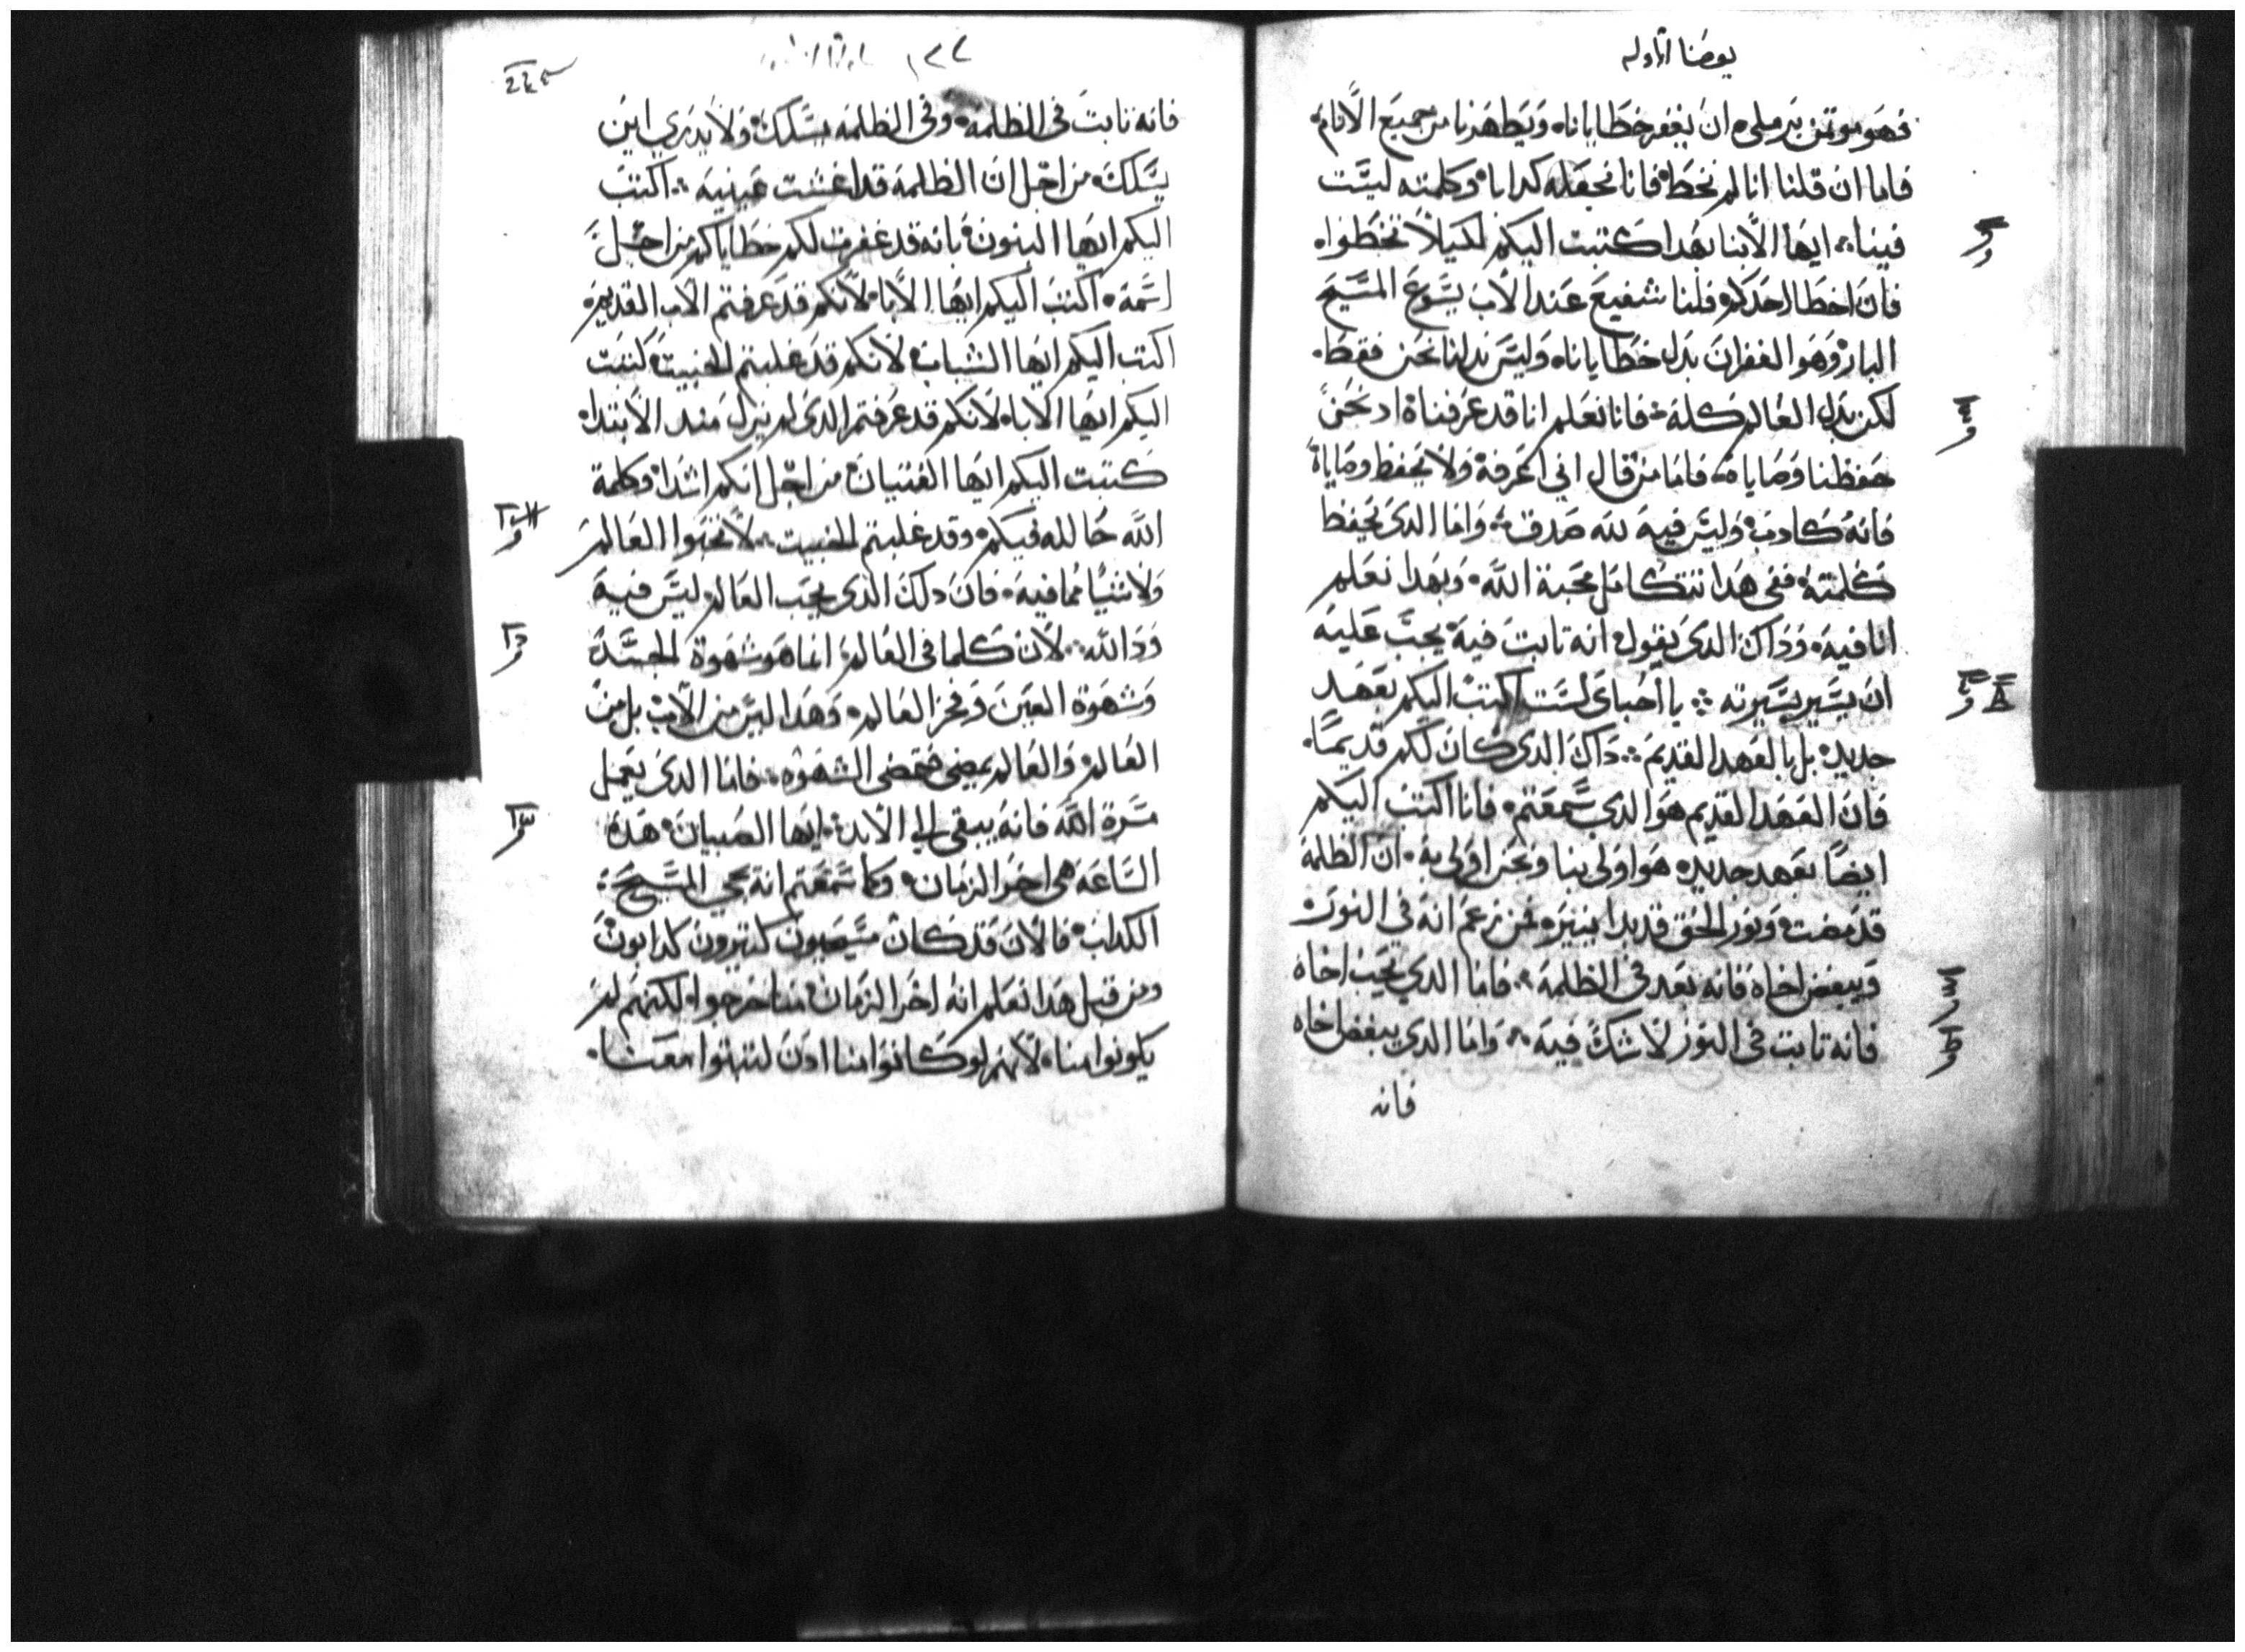 يوحنا الاوله
فهو موتمن بر ملى ان يغفر خطايانا ويطهرنا من جميع الاثام
فاما ان قلنا انا لم نخط فانا نجعله كدابا وكلمته ليست
فينا ايها الابنا بهدا كتبت اليكم لكيلا تخطوا
فان اخطا احدكم فلنا شفيع عند الاب يسوع المسيح
البار وهو الغفران بدل خطايانا وليس بدلنا نحن فقط
لكن بدل العالم كله فانا نعلم انا قد عرفناه اد نحن
حفظنا وصاياه فاما من قال اني اعرفه ولا يحفظ وصاياه
فانه كادب وليس فيه لله صدق واما الدى يحفظ
كلمته ففى هدا تتكامل محبة الله وبهدا نعلم
انا فيه وداك الدى يقول انه تابت فيه يجب عليه
ان يسير بسيرته يا احباى لست اكتب اليكم بعهد
جديد بل بالعهد القديم داك الدى كان لكم قديما
فان العهد القديم هو الدي سمعتم فانا اكتب اليكم
ايضا بعهد جديد هو اولى بنا ونحن اولى به ان الظلمة
قد مضت ونور الحق قد بدا ينير فمن زعم انه فى النور
ويبغض اخاه فانه بعد فى الظلمة فاما الدي يحب اخاه
فانه تابت فى النور لا شك فيه واما الدى يبغض اخاه
فانه
١٢٢
فانه تابت فى الظلمة وفى الظلمة يسلك ولا يدري اين
يسلك من اجل ان الظلمة قد اغشت عينيه اكتب
اليكم ايها البنون بانه قد غفرت لكم خطاياكم من اجل
اسمه اكتب اليكم ايها الابا لانكم قد عرفتم الاب القديم
اكتب اليكم ايها الشباب لانكم قد غلبتم الخبيت كتبت
اليكم ايها الابا لانكم قد عرفتم الدى لم يزل مند الابتدا
كتبت اليكم ايها الفتيان من اجل انكم اشدا وكلمة
الله حالله فيكم وقد غلبتم الخبيت لا تحبوا العالم
ولا شيا مما فيه فان دلك الدى يحب العالم ليس فيه
ود الله لان كلما فى العالم انما هو شهوة الجسد
وشهوة العين وفخر العالم وهدا ليس من الاب بل من
العالم والعالم يمضى وتمضى الشهوه فاما الدى يعمل
مسرة الله فانه يبقى الى الابد ايها الصبيان هده
الساعه هى اخر الزمان وكما سمعتم انه يجي المسيح
الكداب فالان قد كان مسيحيون كتيرون كدابون
ومن قبل هدا نعلم انه اخر الزمان منا خرجوا لكنهم لم
يكونوا منا لانهم لو كانوا منا ادن لتبتوا معنا